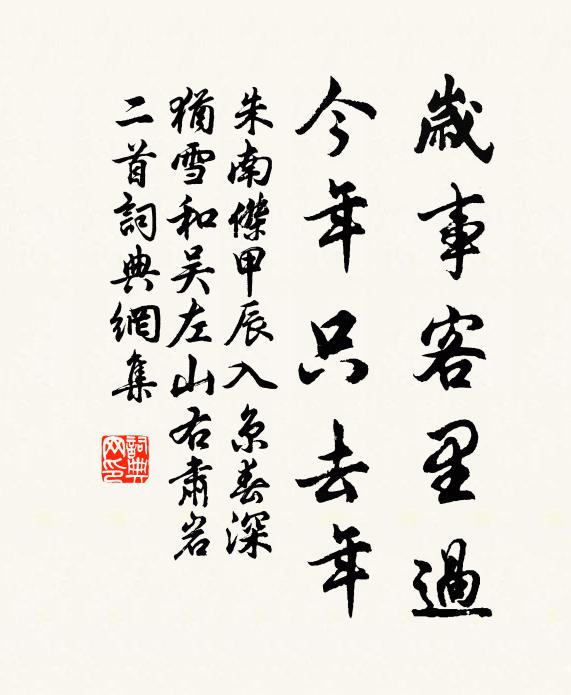 歲事客里過
今年只去年
朱南傑甲辰入京春深
猶雪和吴左山右肅岩
二首詞典網集
詞典网印